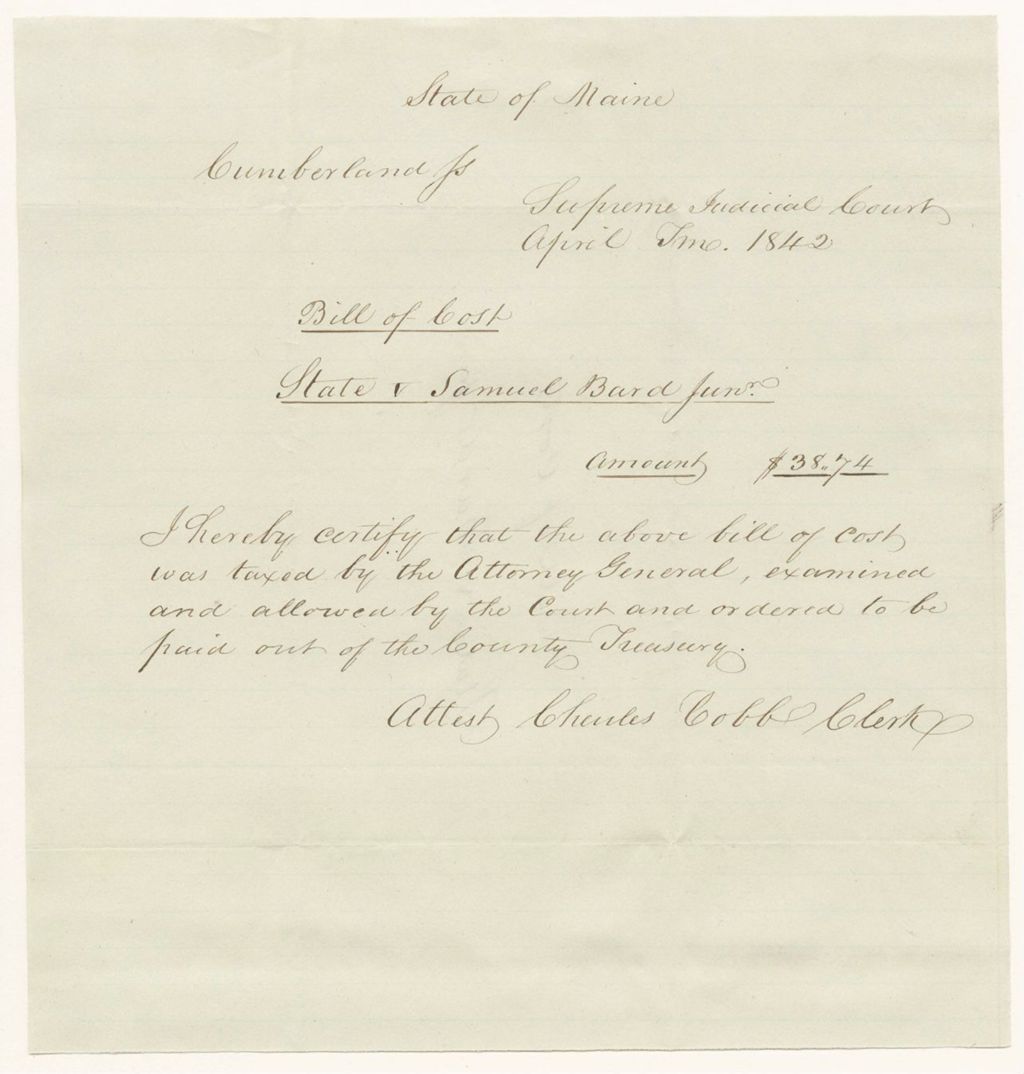 State of Maine
Cumberland ss
Supreme Judicial Court
April Tm. 1842
Bill of Cost
State v Samuel Bard Junr.
Amount $38.74
I hereby certify that the above bill of cost
was taxed by the Attorney General, examined
and allowed by the Court and ordered to be
paid out of the County Treasury.
Attest Charles Cobb Clerk